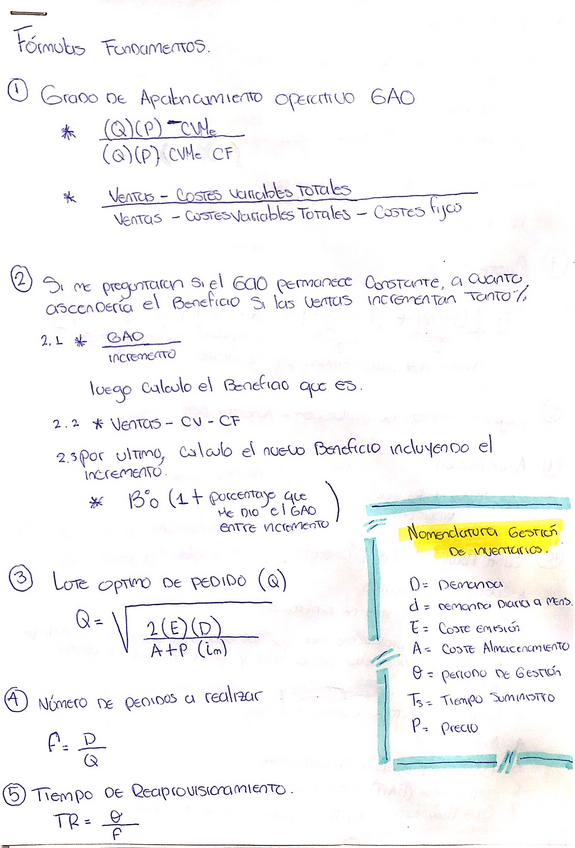 Fórmulas Fundamentos.
① Grado de Apalancamiento operativo GAO
* (Q)(P) - CVMe
(Q)(P) CVMe CF
* Ventas - Costes variables Totales
Ventas - Costes Variables Totales - Costes fijos
② Si me preguntaran si el GAO permanece constante, a cuanto
ascendería el Beneficio si las ventas incrementan tanto%
2.1 * GAO
incremento
luego calculo el Beneficio que es.
2.2 * Ventas - CV - CF
2.3 por ultimo, calculo el nuevo Beneficio incluyendo el
incremento.
* Bº₀ (1 + porcentaje que
me dio el GAO
entre incremento)
③ Lote optimo de pedido (Q)
Q = √ 2(E)(D)
A+P (im)
④ Número de pedidos a realizar
f = D
Q
⑤ Tiempo de Reaprovisionamiento.
TR = θ
f
Nomenclatura Gestión
De inventarios.
D = Demanda
d = demanda Diaria a mens.
E = Coste emisión
A = Coste Almacenamiento
θ = periodo de Gestión
Ts = Tiempo Suministro
P = Precio